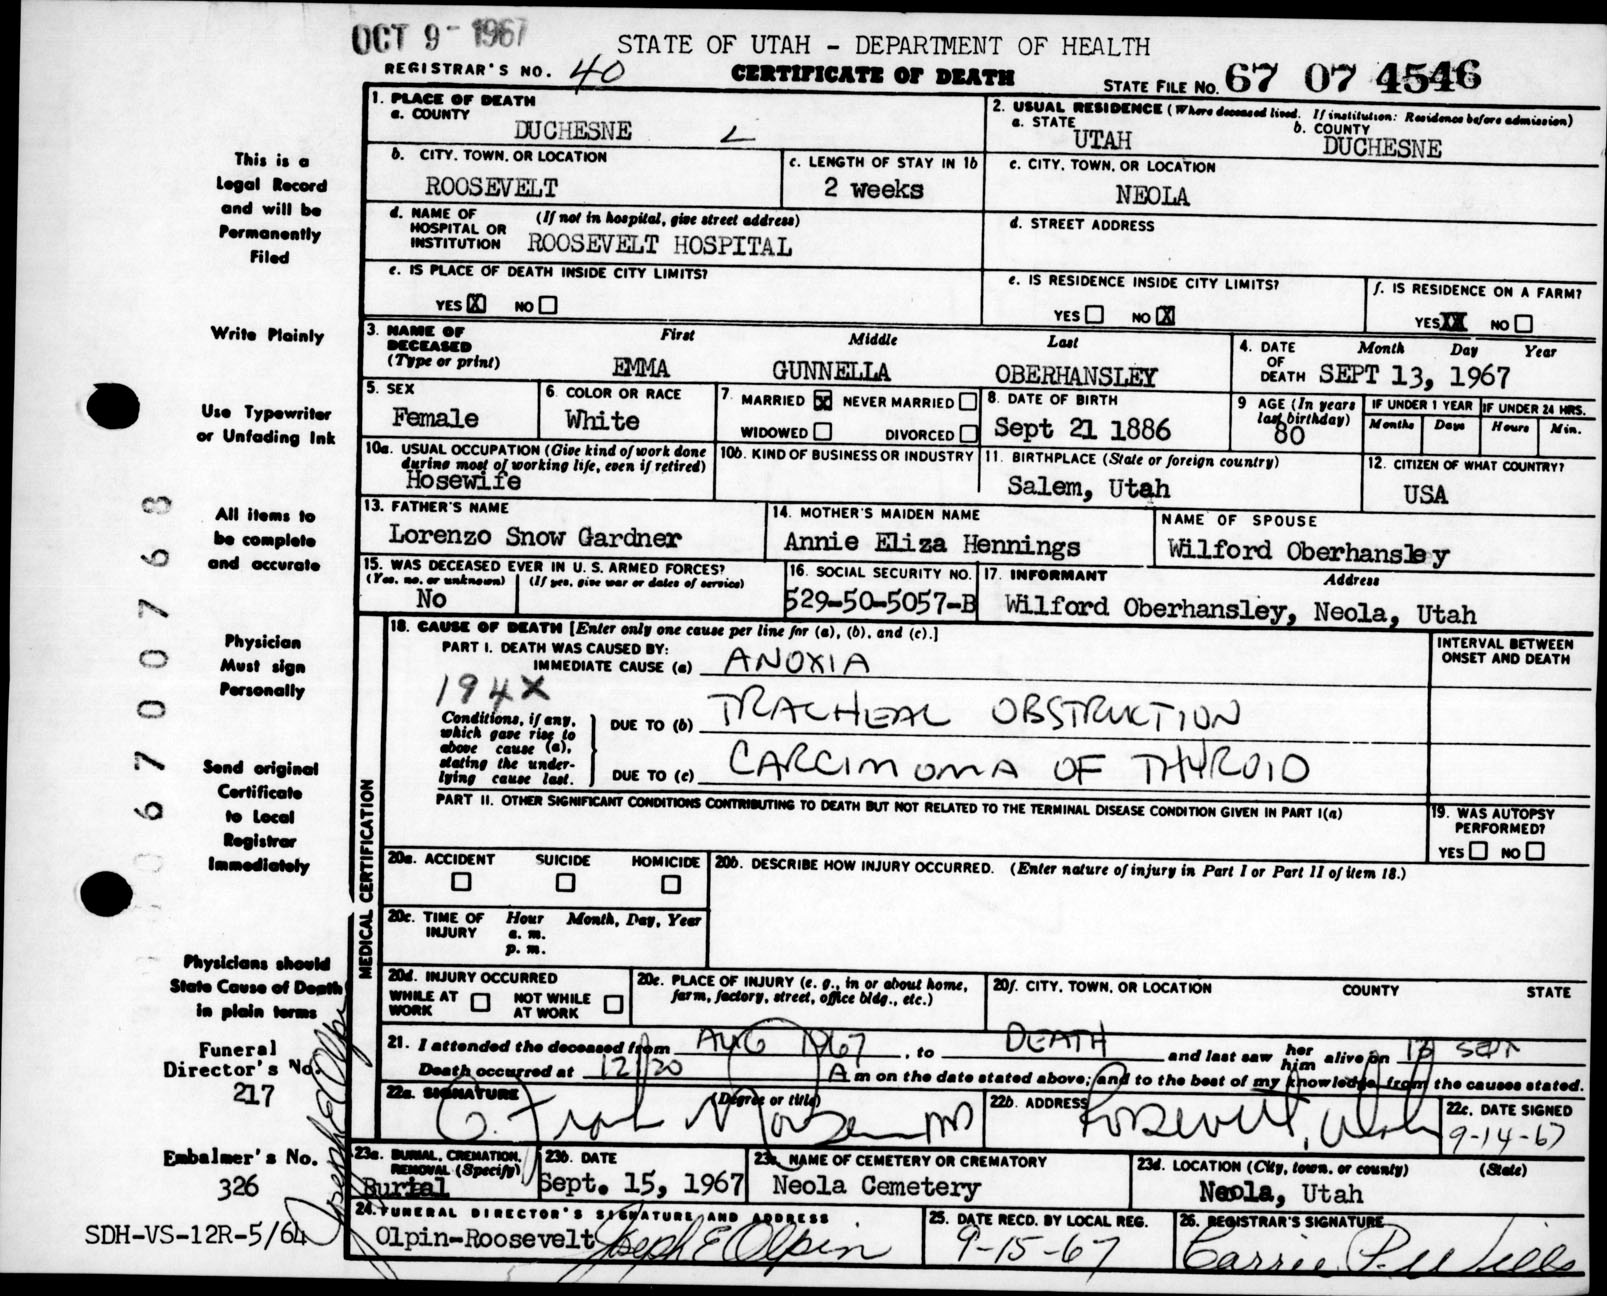 OCT 9- 1967
STATE OF UTAH - DEPARTMENT OF HEALTH
REGISTRAR'S NO. 40
CERTIFICATE OF DEATH
STATE FILE NO. 67 07 4546
This is a
Legal Record
and will be
Permanently
Filed
Write Plainly
Use Typewriter
or Unfading Ink
All items to
be complete
and accurate
Physician
Must sign
Personally
Send original
Certificate
to Local
Registrar
Immediately
Physicians should
State Cause of Death
in plain terms
Funeral
Director's No.
217
Embalmer's No.
326
SDH-VS-12R-5/64
Joseph E Olpin
6700768
1. PLACE OF DEATH
a. COUNTY
DUCHESNE
2. USUAL RESIDENCE (Where deceased lived. If institution: Residence before admission)
a. STATE
UTAH
b. COUNTY
DUCHESNE
b. CITY, TOWN, OR LOCATION
ROOSEVELT
c. LENGTH OF STAY IN 1b
2 weeks
c. CITY, TOWN, OR LOCATION
NEOLA
d. NAME OF HOSPITAL OR INSTITUTION
(If not in hospital, give street address)
ROOSEVELT HOSPITAL
d. STREET ADDRESS
e. IS PLACE OF DEATH INSIDE CITY LIMITS?
YES X NO
e. IS RESIDENCE INSIDE CITY LIMITS?
YES NO X
f. IS RESIDENCE ON A FARM?
YES XX NO
3. NAME OF DECEASED (Type or print)
First Middle Last
EMMA GUNNELLA OBERHANSLEY
4. DATE OF DEATH
Month Day Year
SEPT 13, 1967
5. SEX
Female
6. COLOR OR RACE
White
7. MARRIED X NEVER MARRIED
WIDOWED DIVORCED
8. DATE OF BIRTH
Sept 21 1886
9 AGE (In years last birthday)
80
IF UNDER 1 YEAR
Months Days
IF UNDER 24 HRS.
Hours Min.
10a. USUAL OCCUPATION (Give kind of work done
during most of working life, even if retired)
Hosewife
10b. KIND OF BUSINESS OR INDUSTRY
11. BIRTHPLACE (State or foreign country)
Salem, Utah
12. CITIZEN OF WHAT COUNTRY?
USA
13. FATHER'S NAME
Lorenzo Snow Gardner
14. MOTHER'S MAIDEN NAME
Annie Eliza Hennings
NAME OF SPOUSE
Wilford Oberhansley
15. WAS DECEASED EVER IN U.S. ARMED FORCES?
(Yes, no, or unknown) (If yes, give war or dates of service)
No
16. SOCIAL SECURITY NO.
529-50-5057-B
17. INFORMANT Address
Wilford Oberhansley, Neola, Utah
MEDICAL CERTIFICATION
18. CAUSE OF DEATH [Enter only one cause per line for (a), (b), and (c).]
PART I. DEATH WAS CAUSED BY:
IMMEDIATE CAUSE (a) ANOXIA
INTERVAL BETWEEN
ONSET AND DEATH
194X
Conditions, if any,
which gave rise to
above cause (a),
stating the under-
lying cause last.
DUE TO (b) TRACHEAL OBSTRUCTION
DUE TO (c) CARCINOMA OF THYROID
PART II. OTHER SIGNIFICANT CONDITIONS CONTRIBUTING TO DEATH BUT NOT RELATED TO THE TERMINAL DISEASE CONDITION GIVEN IN PART I(a)
19. WAS AUTOPSY
PERFORMED?
YES NO
20a. ACCIDENT SUICIDE HOMICIDE
20b. DESCRIBE HOW INJURY OCCURRED. (Enter nature of injury in Part I or Part II of item 18.)
20c. TIME OF INJURY
Hour Month, Day, Year
a. m.
p. m.
20d. INJURY OCCURRED
WHILE AT WORK NOT WHILE AT WORK
20e. PLACE OF INJURY (e. g., in or about home,
farm, factory, street, office bldg., etc.)
20f. CITY, TOWN, OR LOCATION COUNTY STATE
21. I attended the deceased from AUG 1967, to DEATH and last saw her him alive on 13 SEPT
Death occurred at 12:20 A m on the date stated above; and to the best of my knowledge, from the causes stated.
22a. SIGNATURE (Degree or title)
MD
22b. ADDRESS
Roosevelt, Utah
22c. DATE SIGNED
9-14-67
23a. BURIAL, CREMATION,
REMOVAL (Specify)
Burial
23b. DATE
Sept. 15, 1967
23c. NAME OF CEMETERY OR CREMATORY
Neola Cemetery
23d. LOCATION (City, town, or county) (State)
Neola, Utah
24. FUNERAL DIRECTOR'S SIGNATURE AND ADDRESS
Olpin-Roosevelt Joseph E Olpin
25. DATE RECD. BY LOCAL REG.
9-15-67
26. REGISTRAR'S SIGNATURE
Carrie P. Wills